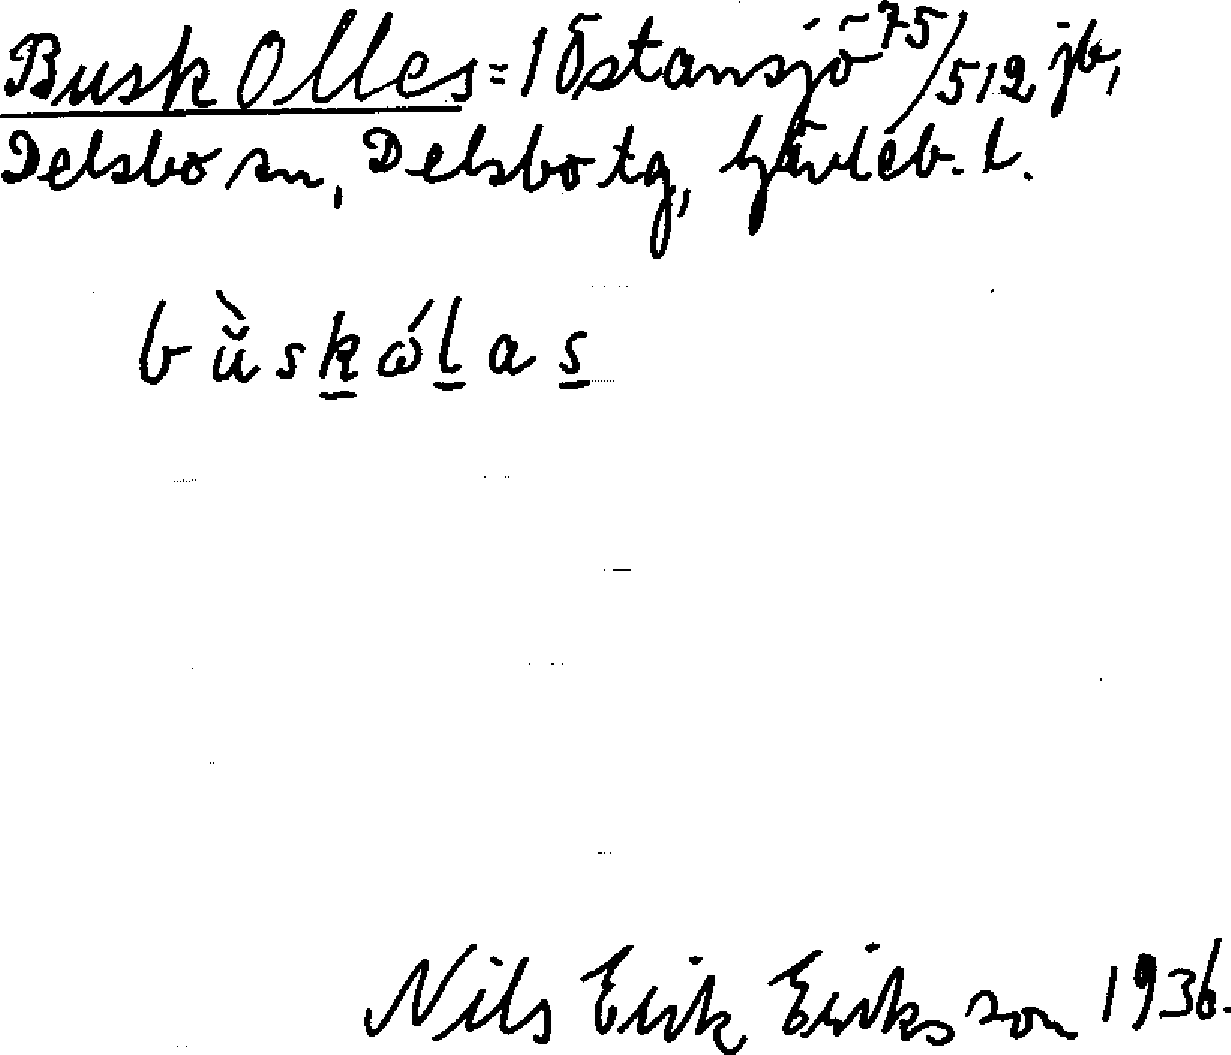 Busk Olles = 1 Östansjö 75/512 jb,
Delsbo sn, Delsbo tg, Gävleb. l.
bùskólas
Nils Erik Eriksson 1936.